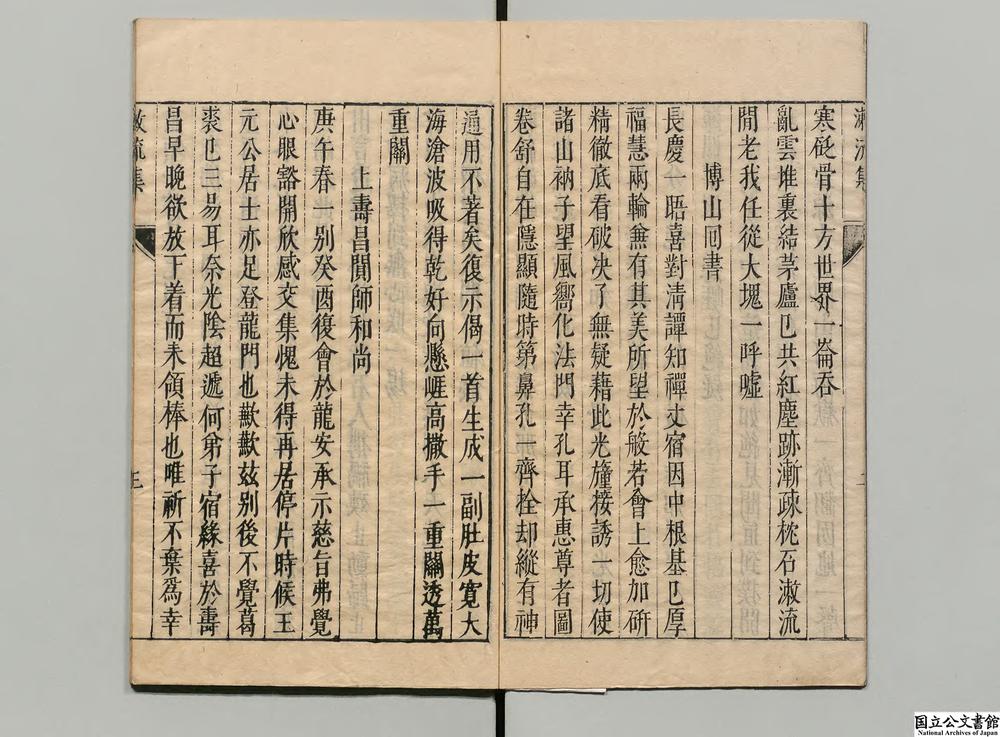 寒砭骨十方世界一崙吞
亂雲堆裏結茅廬㔾共紅塵跡漸疎枕石潄流
閒老我任從大塊一呼噓
博山囘書
長慶一晤喜對淸譚知禪丈宿因中根基㔾厚
福慧兩輪兼有其美所望於般若會上愈加硏
精徹底看破决了無疑藉此光幢接誘一切使
諸山衲子望風嚮化法門幸孔耳承惠尊者圖
卷舒自在隱顯隨時第鼻孔一齊栓却縱有神
通用不著矣復示偈一首生成一副肚皮寬大
海滄波吸得乾好向懸崕高撒手一重關透萬
重關
上壽昌閴師和尚
庚午春一别癸酉復會於龍安承示慈旨弗覺
心眼豁開欣感交集愧未得再居停片時候王
元公居士亦足登龍門也歉歉玆别後不覺葛
裘㔾三易耳奈光陰超遞何弟子宿緣喜於壽
昌早晚欲放下着而未領棒也唯祈不棄爲幸
潄流集
三
国立公文書館
National Archives of Japan